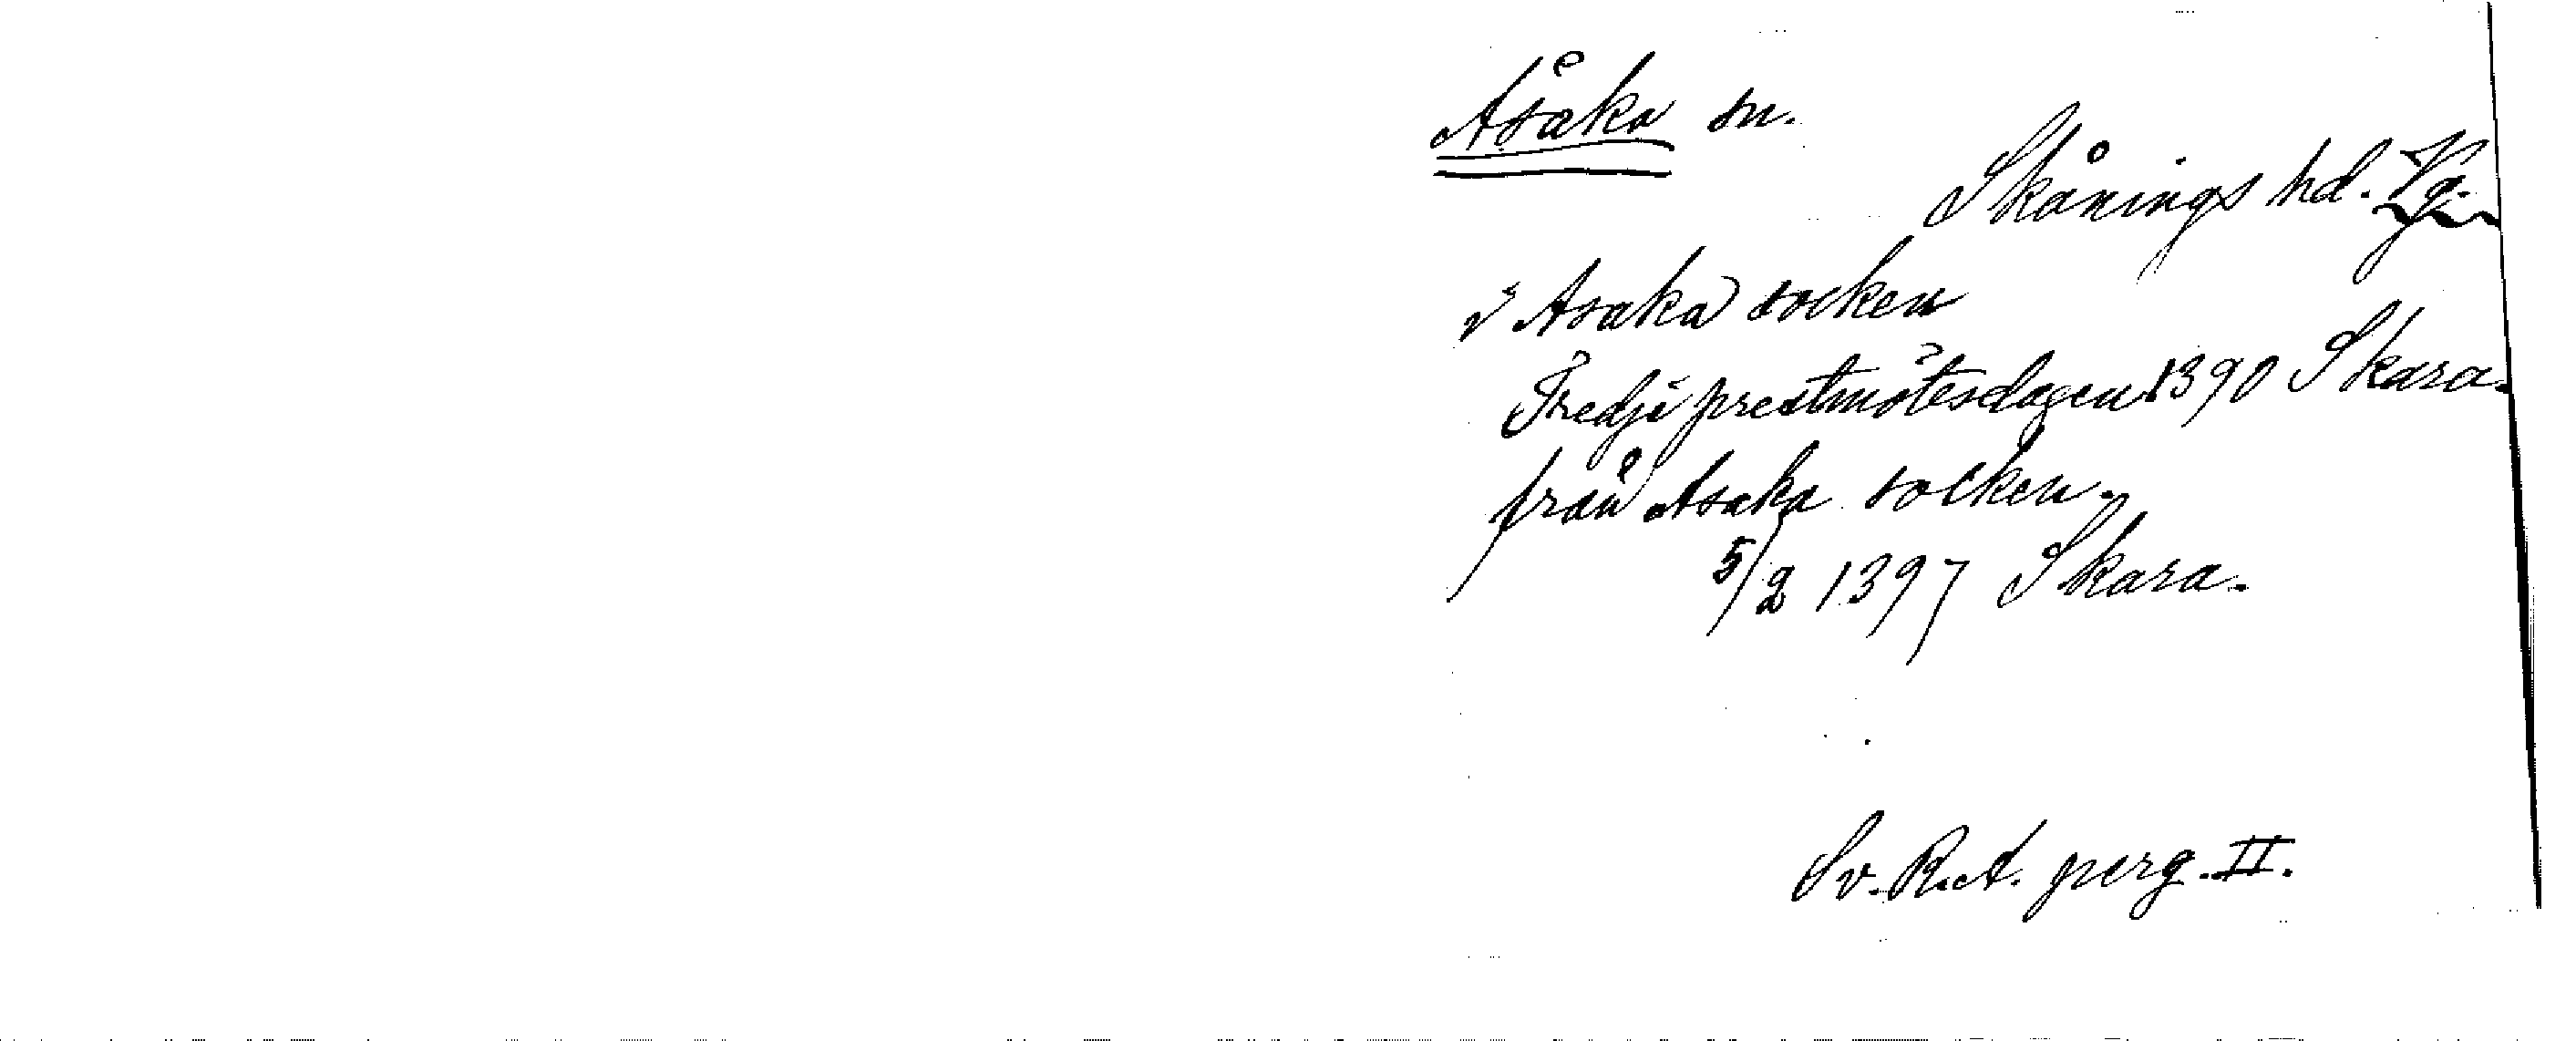 Åsaka sn.
Skånings hd. Vg.
i Asaka socken
Tredje prestmötesdagen 1390 Skara.
från Asaka socken.
5/2 1397 Skara.
Sv. R. A. perg. II.